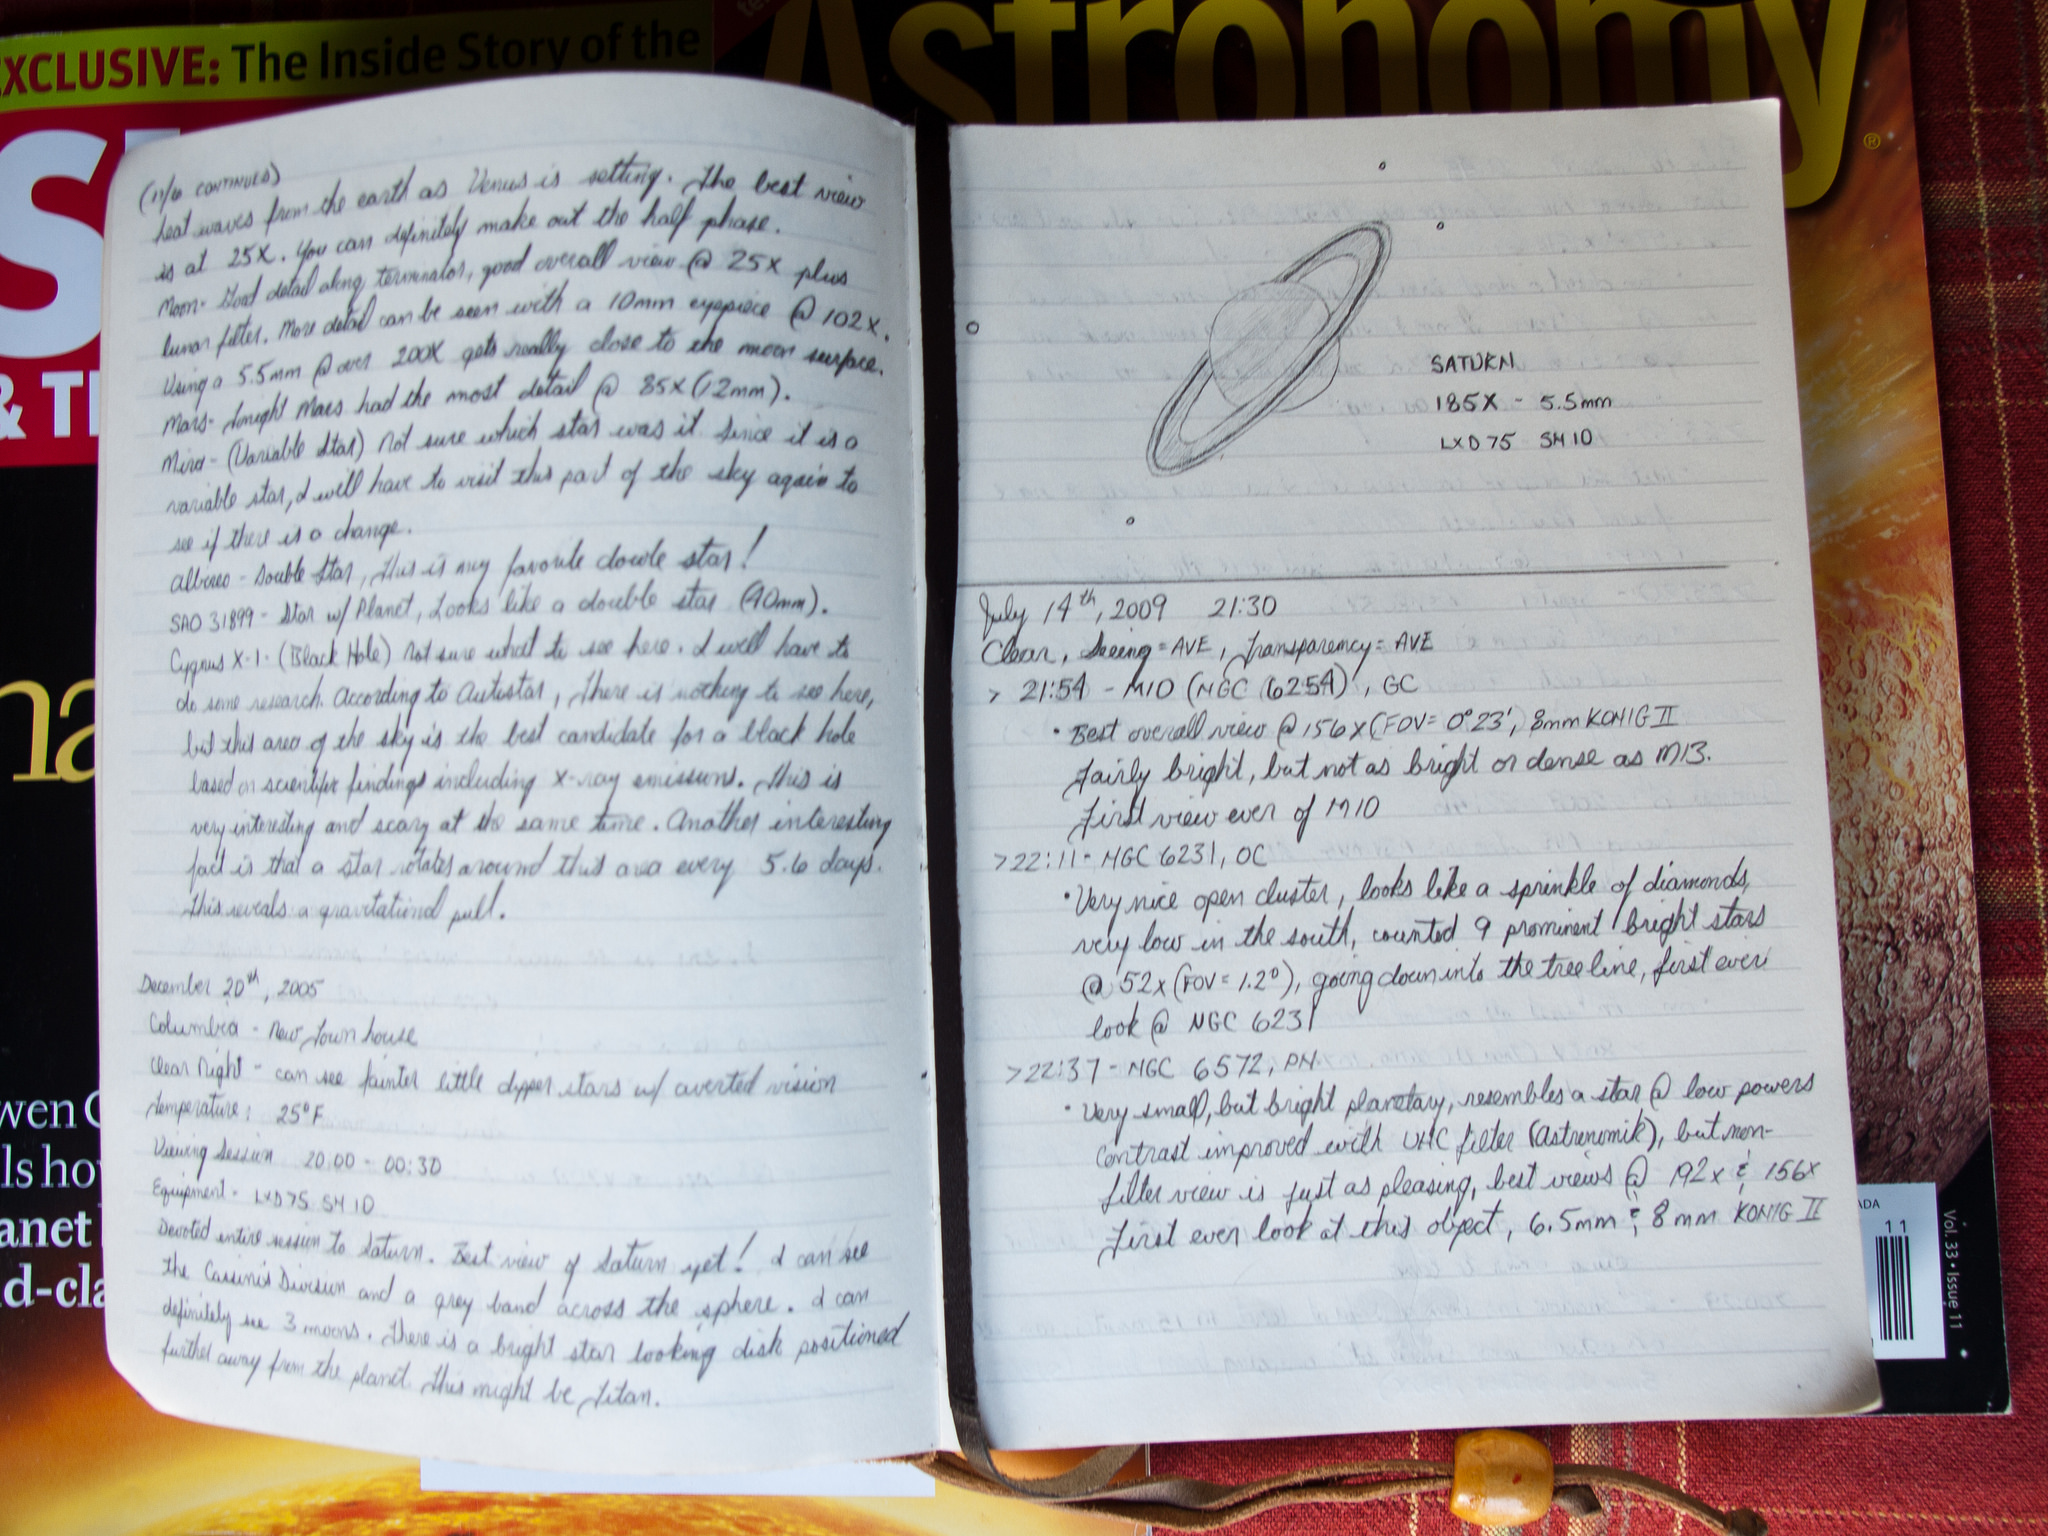 EXCLUSIVE: The Inside Story of the
Astronomy
®
(11/6 CONTINUES)
heat waves from the earth as Venus is setting. The best view
is at 25X. You can definitely make out the half phase.
Moon- Good detail along terminator, good overall view @ 25X plus
lunar filter. More detail can be seen with a 10mm eyepiece @ 102X.
Using a 5.5mm @ over 200X gets really close to the moon surface.
Mars- Tonight Mars had the most detail @ 85X (12mm).
Mira- (Variable Star) Not sure which star was it. Since it is a
variable star, I will have to visit this part of the sky again to
see if there is a change.
Albireo - Double Star, This is my favorite double star!
SAO 31899 - Star w/ Planet, Looks like a double star (40mm).
Cygnus X-1- (Black Hole) Not sure what to see here. I will have to
do some research. According to Autostar, There is nothing to see here,
but this area of the sky is the best candidate for a black hole
based on scientific findings including x-ray emissions. This is
very interesting and scary at the same time. Another interesting
fact is that a star rotates around this area every 5.6 days.
This reveals a gravitational pull.
December 20th, 2005
Columbia - New Town house
Clear Night - can see fainter little dipper stars w/ averted vision
Temperature: 25°F
Viewing Session 20:00 - 00:30
Equipment - LXD75 SN10
Devoted entire session to Saturn. Best view of Saturn yet! I can see
the Cassini's Division and a grey band across the sphere. I can
definitely see 3 moons. There is a bright star looking disk positioned
further away from the planet. This might be Titan.
SATURN
185X - 5.5mm
LXD75 SN10
July 14th, 2009 21:30
Clear, Seeing = AVE, Transparency = AVE
> 21:54 - M10 (NGC 6254), GC
• Best overall view @ 156x (FOV= 0°23', 8mm KONIG II
fairly bright, but not as bright or dense as M13.
First view ever of M10
>22:11- NGC 6231, OC
• Very nice open cluster, looks like a sprinkle of diamonds,
very low in the south, counted 9 prominent bright stars
@ 52x (FOV = 1.2°), going down into the tree line, first ever
look @ NGC 6231
>22:37 - NGC 6572, PN
• Very small, but bright planetary, resembles a star @ low powers
contrast improved with UHC filter (Astronomik), but non-
filter view is just as pleasing, best views @ 192x & 156x
First ever look at this object, 6.5mm & 8mm KONIG II
S
& T
na
wen
ls ho
anet
d-cla
ADA
11
Vol. 33 • Issue 11